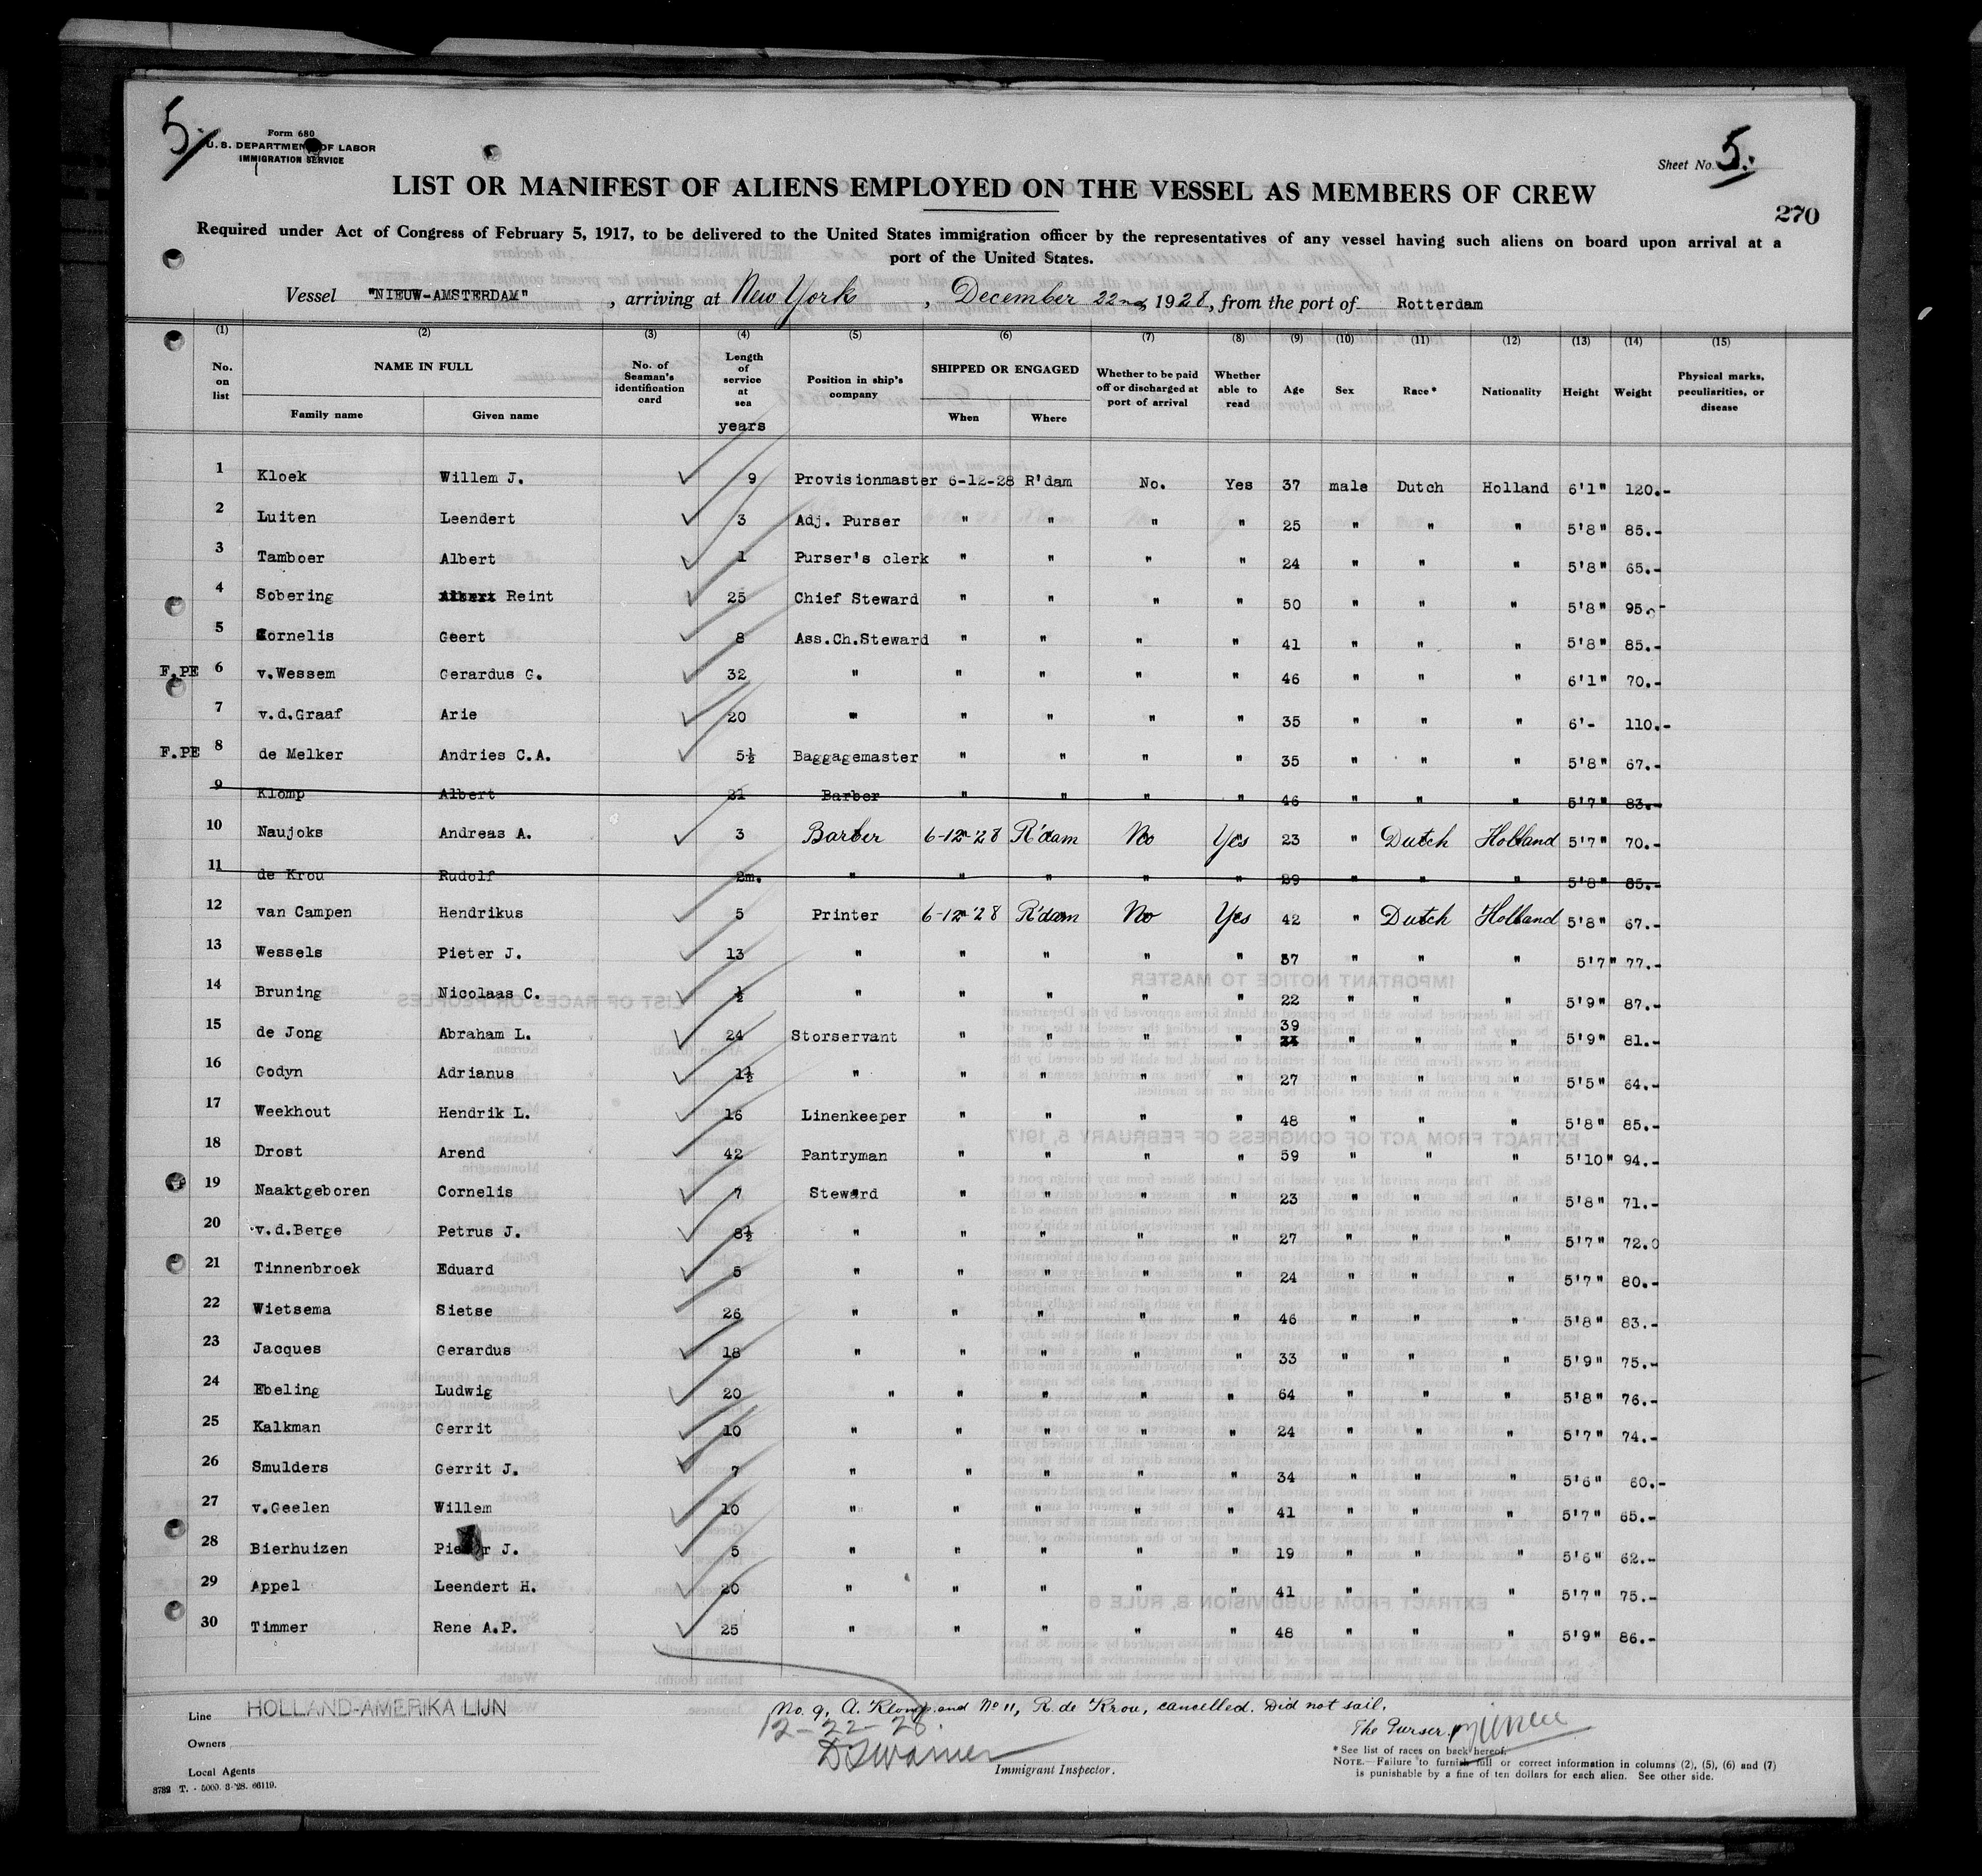 5.
Form 680
U. S. DEPARTMENT OF LABOR
IMMIGRATION SERVICE
Sheet No. 5.
LIST OR MANIFEST OF ALIENS EMPLOYED ON THE VESSEL AS MEMBERS OF CREW
270
Required under Act of Congress of February 5, 1917, to be delivered to the United States immigration officer by the representatives of any vessel having such aliens on board upon arrival at a
port of the United States.
Vessel "NIEUW-AMSTERDAM", arriving at New York, December 22nd, 1928, from the port of Rotterdam
(1) (2) (3) (4) (5) (6) (7) (8) (9) (10) (11) (12) (13) (14) (15)
No. on list NAME IN FULL Family name Given name No. of Seaman's identification card Length of service at sea years Position in ship's company SHIPPED OR ENGAGED When Where Whether to be paid off or discharged at port of arrival Whether able to read Age Sex Race* Nationality Height Weight Physical marks, peculiarities, or disease
1 Kloek Willem J. 9 Provisionmaster 6-12-28 R'dam No. Yes 37 male Dutch Holland 6'1" 120.-
2 Luiten Leendert 3 Adj. Purser " " " " 25 " " " 5'8" 85.-
3 Tamboer Albert 1 Purser's clerk " " " " 24 " " " 5'8" 65.-
4 Sobering Albert Reint 25 Chief Steward " " " " 50 " " " 5'8" 95.-
5 Cornelis Geert 8 Ass.Ch.Steward " " " " 41 " " " 5'8" 85.-
F.PE 6 v.Wessem Gerardus G. 32 " " " " " 46 " " " 6'1" 70.-
7 v.d.Graaf Arie 20 " " " " " 35 " " " 6'- 110.-
F.PE 8 de Melker Andries C.A. 5½ Baggagemaster " " " " 35 " " " 5'8" 67.-
9 Klomp Albert 21 Barber " " " " 46 " " " 5'7" 83.-
10 Naujoks Andreas A. 3 Barber 6-12-'28 R'dam No Yes 23 " Dutch Holland 5'7" 70.-
11 de Krou Rudolf 2m. " " " " " 39 " " " 5'8" 85.-
12 van Campen Hendrikus 5 Printer 6-12-'28 R'dam No Yes 42 " Dutch Holland 5'8" 67.-
13 Wessels Pieter J. 13 " " " " " 37 " " " 5'7" 77.-
14 Bruning Nicolaas C. ½ " " " " " 22 " " " 5'9" 87.-
15 de Jong Abraham L. 24 Storservant " " " " 39 " " " 5'9" 81.-
16 Godyn Adrianus 1½ " " " " " 27 " " " 5'5" 64.-
17 Weekhout Hendrik L. 16 Linenkeeper " " " " 48 " " " 5'8" 85.-
18 Drost Arend 42 Pantryman " " " " 59 " " " 5'10" 94.-
19 Naaktgeboren Cornelis 7 Steward " " " " 23 " " " 5'8" 71.-
20 v.d.Berge Petrus J. 8½ " " " " " 27 " " " 5'7" 72.0
21 Tinnenbroek Eduard 5 " " " " " 24 " " " 5'7" 80.-
22 Wietsema Sietse 26 " " " " " 46 " " " 5'8" 83.-
23 Jacques Gerardus 18 " " " " " 33 " " " 5'9" 75.-
24 Ebeling Ludwig 20 " " " " " 64 " " " 5'8" 76.-
25 Kalkman Gerrit 10 " " " " " 24 " " " 5'7" 74.-
26 Smulders Gerrit J. 7 " " " " " 34 " " " 5'6" 60.-
27 v.Geelen Willem 10 " " " " " 41 " " " 5'7" 65.-
28 Bierhuizen Pieter J. 5 " " " " " 19 " " " 5'6" 62.-
29 Appel Leendert H. 20 " " " " " 41 " " " 5'7" 75.-
30 Timmer Rene A.P. 25 " " " " " 48 " " " 5'9" 86.-
Line HOLLAND-AMERIKA LIJN
No. 9, A. Klomp and No 11, R. de Krou, cancelled. Did not sail.
12-22-28.
The Purser,
Owners
Immigrant Inspector.
Local Agents
*See list of races on back hereof.
NOTE.—Failure to furnish full or correct information in columns (2), (5), (6) and (7)
is punishable by a fine of ten dollars for each alien. See other side.
3732 T. - 5000. 3-'28. 66119.